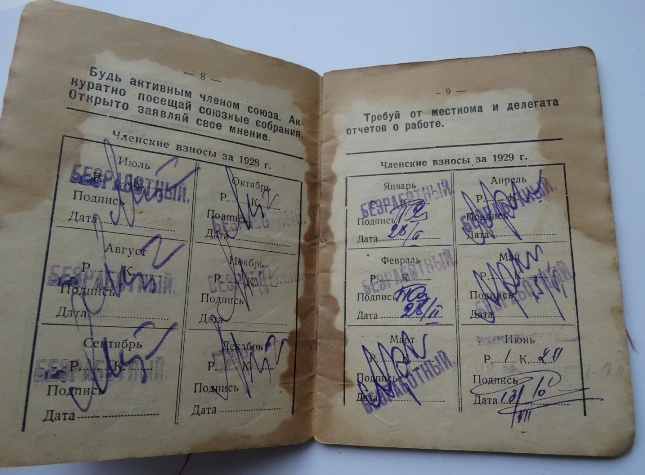 — 8 —
Будь активным членом союза. Ак-
куратно посещай союзные собрания.
Открыто заявляй свое мнение.
Членские взносы за 1928 г.
Июль
Р. К.
БЕЗРАБОТНЫЙ.
Подпись
Дата
Октябрь
Р. К.
БЕЗРАБОТНЫЙ.
Подпись
Дата
Август
Р. К.
БЕЗРАБОТНЫЙ.
Подпись
Дата
Ноябрь
Р. К.
БЕЗРАБОТНЫЙ.
Подпись
Дата
Сентябрь
Р. К.
БЕЗРАБОТНЫЙ.
Подпись
Дата
Декабрь
Р. К.
БЕЗРАБОТНЫЙ.
Подпись
Дата
- 9 —
Требуй от месткома и делегата
отчетов о работе.
Членские взносы за 1929 г.
Январь
Р. К.
БЕЗРАБОТНЫЙ.
Подпись
Дата 28/II
Апрель
Р. К.
БЕЗРАБОТНЫЙ.
Подпись
Дата
Февраль
Р. К.
БЕЗРАБОТНЫЙ.
Подпись
Дата 28/II
Май
Р. К.
БЕЗРАБОТНЫЙ.
Подпись
Дата
Март
Р. К.
БЕЗРАБОТНЫЙ.
Подпись
Дата
Июнь
Р. 1 К. 20
Подпись
Дата